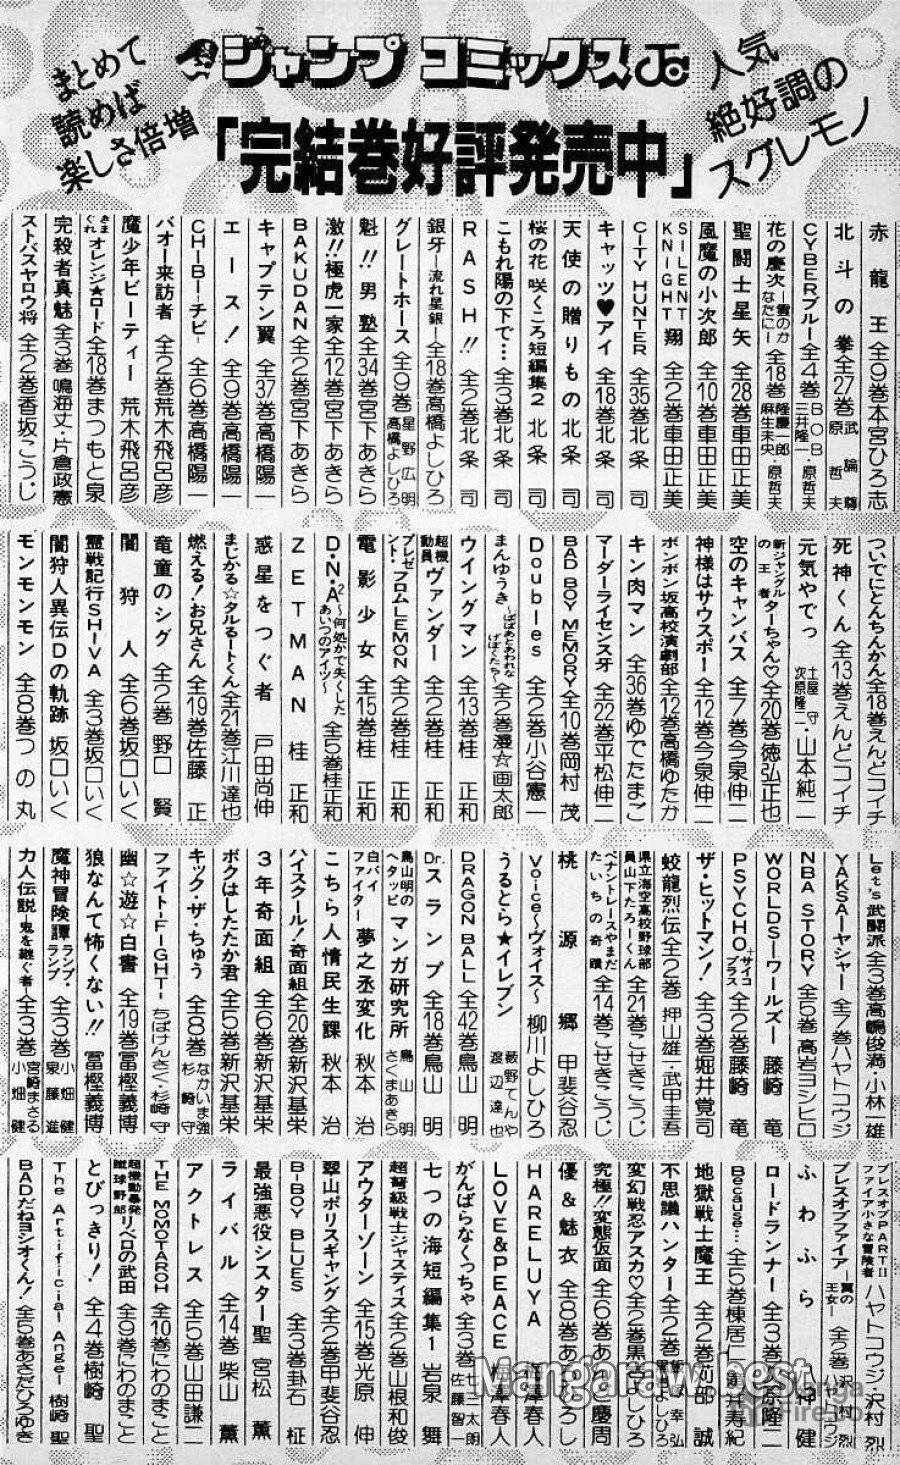 人気
絶好調の
スグレモノ
ジャンプ コミックス
「完結巻好評発売中」
まとめて
読めば
楽しさ倍増
赤龍王 全9巻 本宮ひろ志
北斗の拳 全27巻 武論尊 原哲夫
CYBERブルー 全4巻 BOB 三井隆一・原哲夫
花の慶次―雲のかなたに― 全18巻 隆慶一郎 麻生未央・原哲夫
聖闘士星矢 全28巻 車田正美
風魔の小次郎 全10巻 車田正美
SILENT KNIGHT 翔 全2巻 車田正美
CITY HUNTER 全35巻 北条司
キャッツ♥アイ 全18巻 北条司
天使の贈りもの 北条司
桜の花 咲くころ 短編集2 北条司
こもれ陽の下で… 全3巻 北条司
RASH!! 全2巻 北条司
銀牙―流れ星 銀― 全18巻 高橋よしひろ
グレートホース 全9巻 星野広明 高橋よしひろ
魁!!男塾 全34巻 宮下あきら
激!!極虎一家 全12巻 宮下あきら
BAKUDAN 全2巻 宮下あきら
キャプテン翼 全37巻 高橋陽一
エース! 全9巻 高橋陽一
CHIBI―チビ― 全6巻 高橋陽一
バオー来訪者 全2巻 荒木飛呂彦
魔少年ビーティー 荒木飛呂彦
きまぐれオレンジ★ロード 全18巻 まつもと泉
完殺者真魅 全3巻 鳴海丈・片倉政憲
ストバスヤロウ将 全2巻 香坂こうじ
ついでにとんちんかん 全18巻 えんどコイチ
死神くん 全13巻 えんどコイチ
元気やでっ 土屋守・次原隆二・山本純二
新ジャングルの王者ターちゃん♡ 全20巻 徳弘正也
空のキャンバス 全7巻 今泉伸二
神様はサウスポー 全12巻 今泉伸二
ボンボン坂高校演劇部 全12巻 高橋ゆたか
キン肉マン 全36巻 ゆでたまご
マーダーライセンス牙 全22巻 平松伸二
BAD BOY MEMORY 全10巻 岡村茂
Doubles 全2巻 小谷憲一
まんゆうき〜ばばあとあわれなげぼくたち〜 全2巻 漫☆画太郎
ウイングマン 全13巻 桂正和
超機動員ヴァンダー 全2巻 桂正和
プレゼント・フロムLEMON 全2巻 桂正和
電影少女 全15巻 桂正和
D・N・A²〜何処かで失くしたあいつのアイツ〜 全5巻 桂正和
ZETMAN 桂正和
惑星をつぐ者 戸田尚伸
まじかる☆タルるートくん 全21巻 江川達也
燃える!お兄さん 全19巻 佐藤正
竜童のシグ 全2巻 野口賢
闇狩人 全6巻 坂口いく
霊戦記行SHIVA 全3巻 坂口いく
闇狩人異伝Dの軌跡 坂口いく
モンモンモン 全8巻 つの丸
Let's武闘派 全3巻 高嶋俊満・小林一雄
YAKSA―ヤシャ― 全7巻 ハヤトコウジ
NBA STORY 全5巻 高岩ヨシヒロ
WORLDS―ワールズ― 藤崎竜
PSYCHO+サイコプラス 全2巻 藤崎竜
ザ・ヒットマン! 全3巻 堀井覚司
蛟龍烈伝 全2巻 押山雄一・武甲圭吾
県立海空高校野球部員山下たろーくん 全21巻 こせきこうじ
ペナントレースやまだたいちの奇蹟 全14巻 こせきこうじ
桃源郷 甲斐谷忍
Voice〜ヴォイス〜 柳川よしひろ
うるとら★イレブン 薮野てんや 渡辺達也
DRAGON BALL 全42巻 鳥山明
Dr.スランプ 全18巻 鳥山明
鳥山明のヘタッピマンガ研究所 鳥山明 さくまあきら
白バイファイター 夢之丞変化 秋本治
こちら人情民生課 秋本治
ハイスクール!奇面組 全20巻 新沢基栄
3年奇面組 全6巻 新沢基栄
ボクはしたたか君 全5巻 新沢基栄
キック・ザ・ちゅう 全8巻 なかいま強 杉崎守
ファイト―FIGHT― ちばけんさく・杉崎守
幽☆遊☆白書 全19巻 冨樫義博
狼なんて怖くない!! 冨樫義博
魔神冒険譚ランプ・ランプ 全3巻 小畑健 泉藤進
力人伝説―鬼を継ぐ者― 全3巻 宮崎まさる 小畑健
ブレスオブファイアPARTII 小さな冒険者 ハヤトコウジ・沢村烈
ブレスオブファイア―翼の王女― 全2巻
ふわふら 神健
ロードランナー 全3巻 次原隆二
Because… 全5巻 棟居仁
不思議ハンター 全2巻
地獄戦士魔王 全2巻 刑部誠
変幻戦忍アスカ♡ 全2巻 黒岩よしひろ
究極!!変態仮面 全6巻 あんど慶周
優&魅衣 全8巻 あろひろし
HARELUYA 梅澤春人
LOVE&PEACE 梅澤春人
がんばらなくっちゃ 全3巻 七三太朗 佐藤智一
七つの海 短編集1 岩泉舞
超弩級戦士ジャスティス 全2巻 山根和俊
アウターゾーン 全15巻 光原伸
翠山ポリスギャング 全2巻 甲斐谷忍
B-BOY BLUES 全3巻 卦石柾
最強悪役シスター聖 宮松薫
ライバル 全14巻 柴山薫
アクトレス 全5巻 山田謙二
THE MOMOTAROH 全10巻 にわのまこと
超機動暴発蹴球野郎リベロの武田 全9巻 にわのまこと
とびっきり! 全4巻 樹崎聖
The Artificial Angel 樹崎聖
BADだねヨシオくん! 全5巻 あさだひろゆき
Mangaraw.best